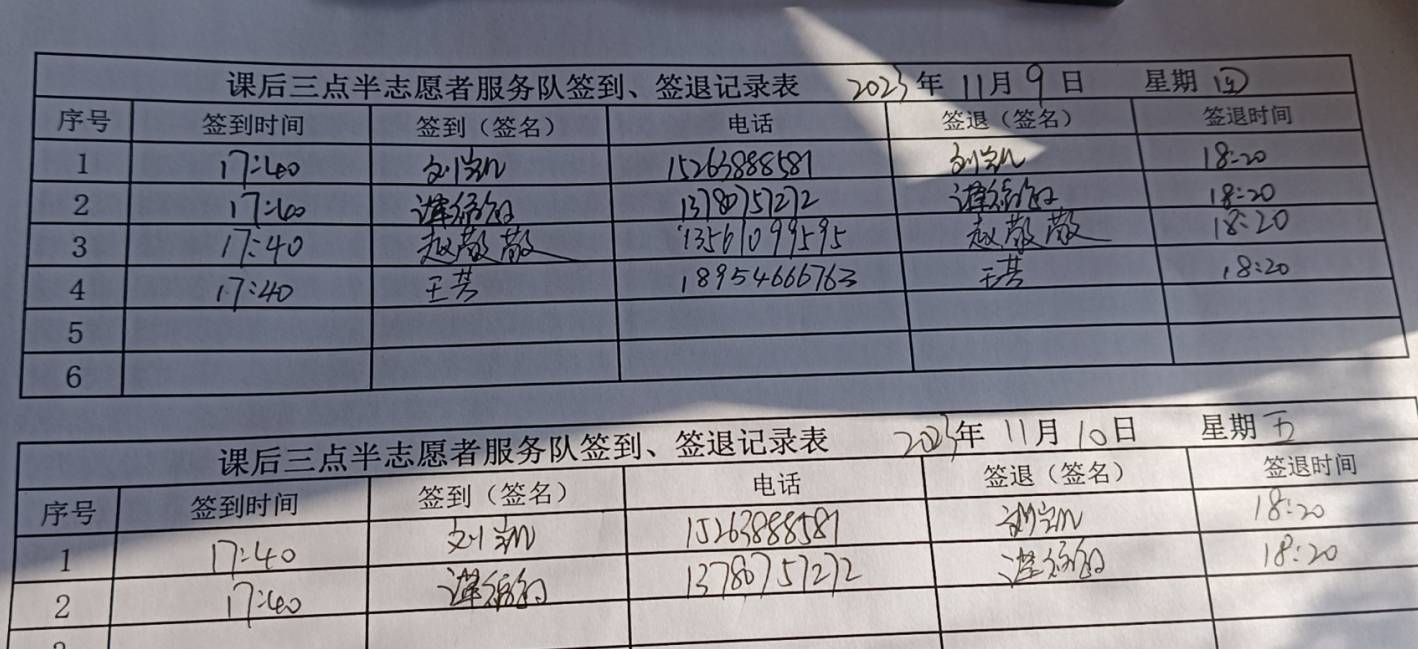 课后三点半志愿者服务队签到、签退记录表 2023年 11月 9日 星期 四
序号 签到时间 签到（签名） 电话 签退（签名） 签退时间
1 17:40 15263888581 18:20
2 17:40 13780751272 18:20
3 17:40 赵敬敬 13561099595 赵敬敬 18:20
4 17:40 王芸 18954666763 王芸 18:20
5
6
课后三点半志愿者服务队签到、签退记录表 2023年 11月 10日 星期 五
序号 签到时间 签到（签名） 电话 签退（签名） 签退时间
1 17:40 15263888581 18:20
2 17:40 13780751272 18:20